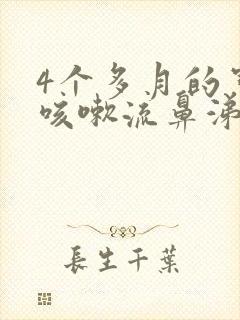 4个多月的
咳嗽流鼻涕
長生千葉